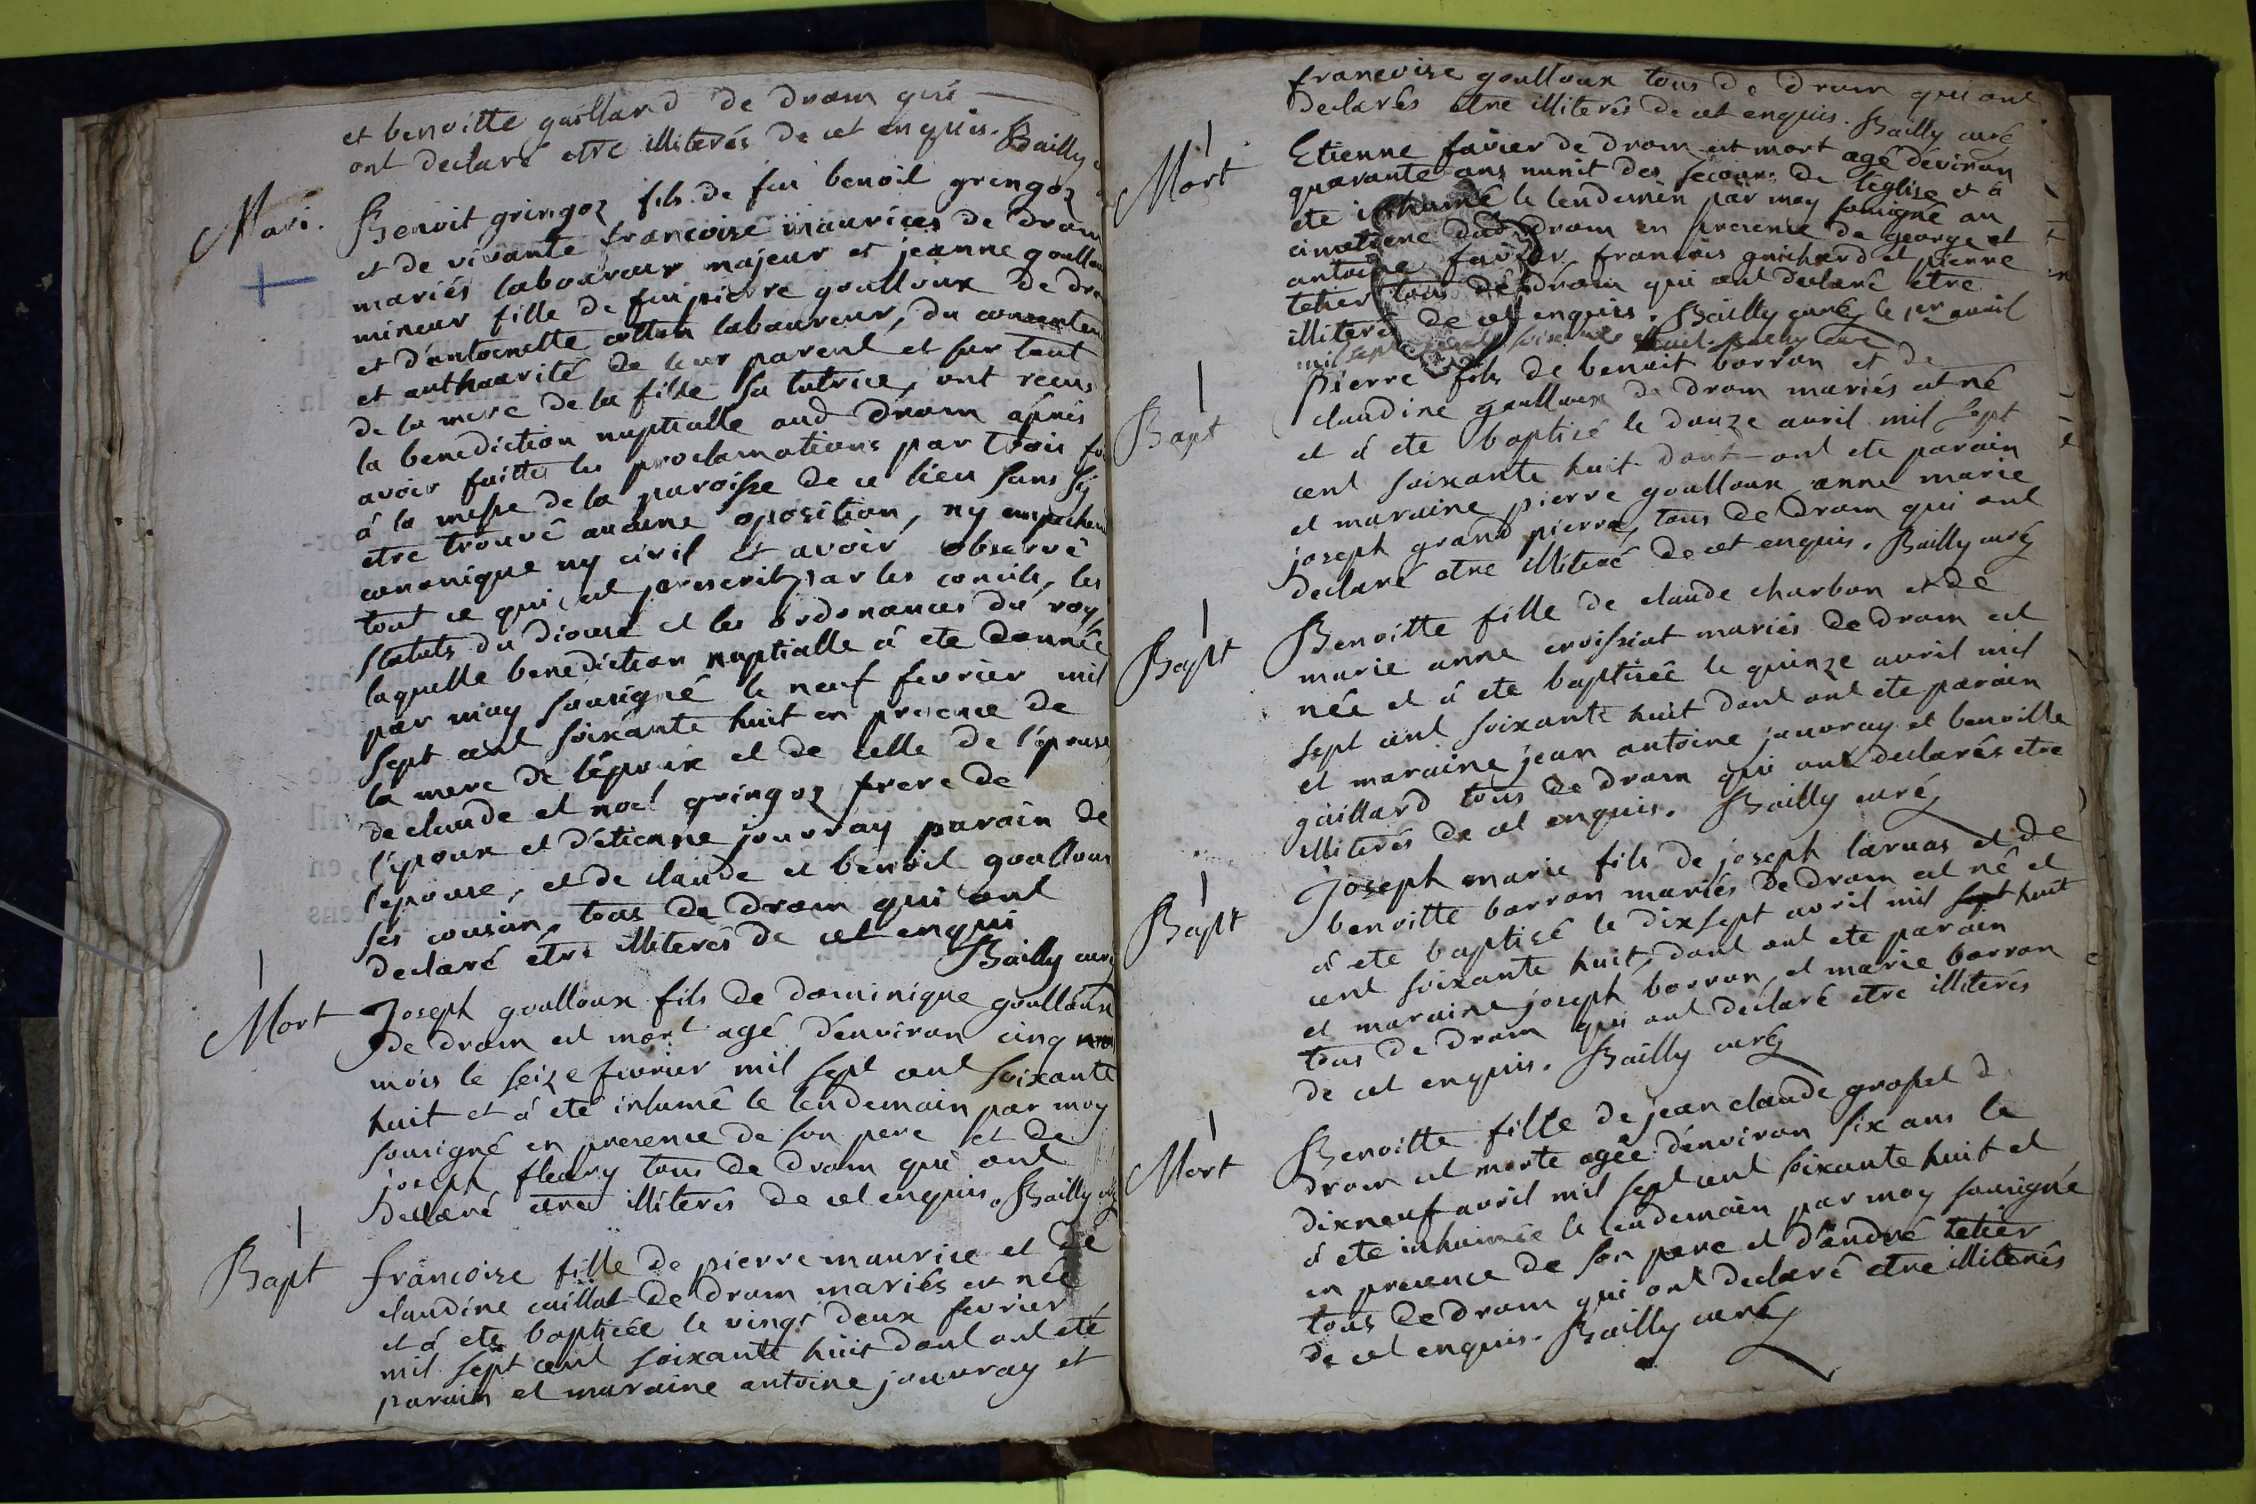 et benoitte gaillard de drom qui
ont declaré etre illiterés de cet enquis. Bailly
Mari.
Benoit gringoz fils de fui benoit gringoz
et de vivante francoise maurices de drom
mariés laboureur majeur et jeanne goullou
mineur fille de fui pierre goulloux de dro
et d'antoinette cotton laboureur, du consentem
et authoarité de leur parent et sur tout
de la mere de la fille sa tutrice, ont recus
la benediction nuptialle aud drom après
avoir faitte les proclamations par trois fo
á la messe de la paroisse de ce lieu sans s'y
etre trouvé aucune oposition, ny empechem
canonique ny civil et avoir observé
tout ce qui est prescrit par les concile, les
statuts du diocese et les ordonances du roy,
laquelle benediction nuptialle á ete donnée
par moy sousigné le neuf fevrier mil
sept cent soixante huit en presence de
la mere de l'époux et de celle de l'épouse
de claude et noel gringoz frere de
l'epoux et d'étienne jouvray parain de
l'epouse, et de claude et benoit goulloux
ses cousin, tous de drom qui ont
declaré étre illiterés de cet enqui
Bailly curé
Mort
Joseph goulloux fils de dominique goulloux
de drom est mort agé d'environ cinq
mois le seize fevrier mil sept cent soixante
huit et á eté inhumé le lendemain par moy
sousigné en presence de son pere et de
joseph fleury tous de drom qui ont
declaré etre illiterés de cet enquis. Bailly
Bapt
francoise fille de pierre maurice et de
claudine caillat de drom mariés est née
et á ete baptisée le vingt deux fevrier
mil sept cent soixante huit dont ont eté
parain et maraine antoine jouvray et
francoise goulloux tous de drom qui ont
declarés etre illiterés de cet enquis. Bailly curé
Mort
Etienne favier de drom est mort agé d'eviron
quarante ans munit des secours de l'église et á
ete inhumé le lendemin par moy sousigné au
cimetiere dud drom en presence de george et
antoine favier francois guichard et pierre
tetier tous de drom qui ont declaré etre
illiteré de cet enquis. Bailly curé le 1er avril
mil sept cents soixante et huit. Bailly curé
Bapt
Pierre fils de benoit borron et de
claudine goulloux de drom mariés est né
et á ete baptisé le douze avril mil sept
cent soixante huit dont ont ete parain
et maraine pierre goulloux anne marie
joseph grand pierre, tous de drom qui ont
declaré etre illiteré de cet enquis. Bailly curé
Bapt
Benoitte fille de claude charbon et de
marie anne croissiat mariés de drom est
née et á ete baptisée le quinze avril mil
sept cent soixante huit dont ont ete parain
et maraine jean antoine jouvray et benoitte
gaillard tous de drom qui ont declarés etre
illiterés de cet enquis. Bailly curé
Bapt
Joseph marie fils de joseph laruas et de
benoitte borron mariés de drom est né et
á ete baptisé le dixsept avril mil sept huit
cent soixante huit, dont ont ete parain
et maraine joseph borron, et marie borron
tous de drom qui ont declaré etre illiterés
de cet enquis. Bailly curé
Mort
Benoitte fille de jean claude grosset d
drom est morte agée d'environ six ans le
dixneuf avril mil sept cent soixante huit et
á ete inhumée le lendemain par moy sousigné
en presence de son pere et d'andré tetier
tous de drom qui ont declaré etre illiterés
de cet enquis. Bailly curé